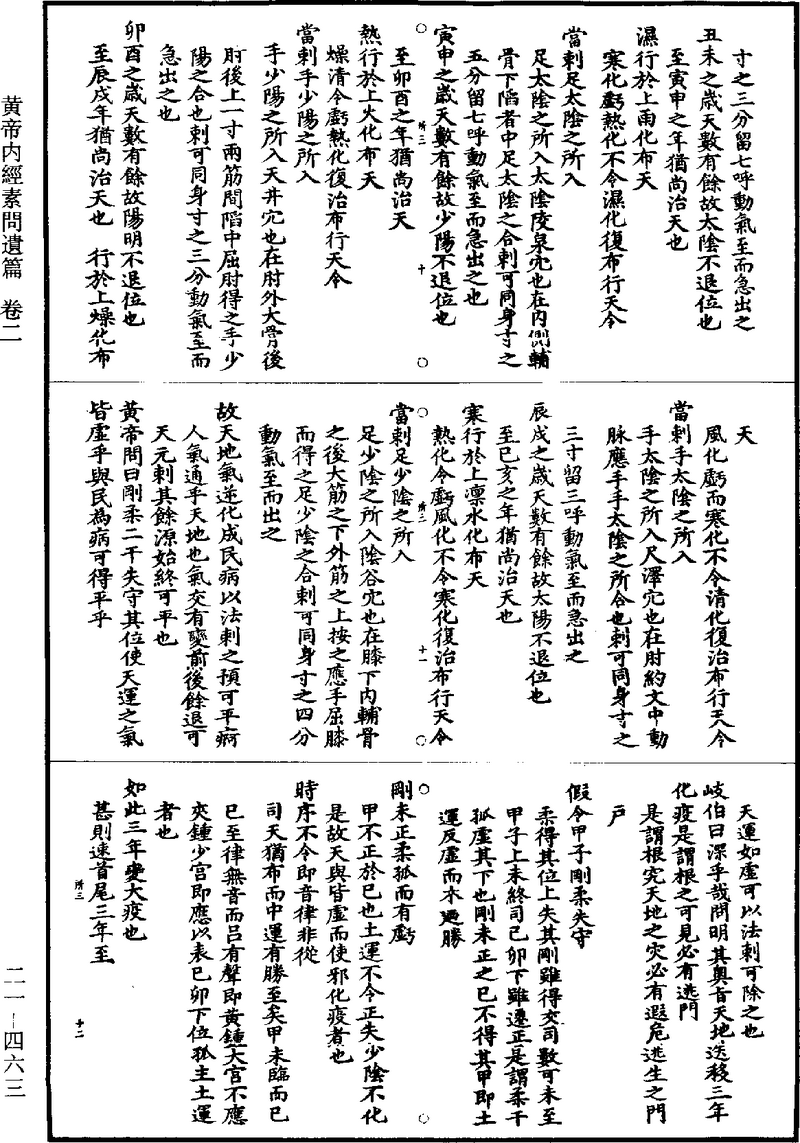 黄帝內經素問遺篇　卷二
寸之三分留七呼動氣至而急出之
丑未之歲天數有餘故太陰不退位也
至寅申之年猶尚治天也
濕行於上雨化布天
寒化虧熱化不令濕化復布行天令
當刺足太陰之所入
足太陰之所入太陰陵泉穴也在內側輔
骨下陷者中足太陰之合刺可同身寸之
五分留七呼動氣至而急出之也
寅申之歲天數有餘故少陽不退位也
所三　十
至卯酉之年猶尚治天
熱行於上火化布天
燥清令虧熱化復治布行天令
當刺手少陽之所入
手少陽之所入天井穴也在肘外大骨後
肘後上一寸兩筋間陷中屈肘得之手少
陽之合也刺可同身寸之三分動氣至而
急出之也
卯酉之歲天數有餘故陽明不退位也
至辰戌年猶尚治天也　行於上燥化布
天
風化虧而寒化不令清化復治布行天令
當刺手太陰之所入
手太陰之所入尺澤穴也在肘約文中動
脉應手手太陰之所合也刺可同身寸之
三寸留三呼動氣至而急出之
辰戌之歲天數有餘故太陽不退位也
至巳亥之年猶尚治天也
寒行於上凛水化布天
熱化令虧風化不令寒化復治布行天令
所三　十一
當刺足少陰之所入
足少陰之所入陰谷穴也在膝下內輔骨
之後大筋之下外筋之上按之應手屈膝
而得之足少陰之合刺可同身寸之四分
動氣至而出之
故天地氣逆化成民病以法刺之預可平痾
人氣通乎天地也氣交有變前後餘退可
天元刺其餘源始終可平也
黃帝問曰剛柔二干失守其位使天運之氣
皆虛乎與民為病可得平乎
天運如虛可以法刺可除之也
岐伯曰深乎哉問明其奧旨天地迭移三年
化疫是謂根之可見必有逃門
是謂根究天地之灾必有遐危逃生之門
戶
假令甲子剛柔失守
柔得其位上失其剛雖得交司數可未至
甲子上未終司己卯下雖遷正是謂柔干
孤虛其下也剛未正之巳不得其甲即土
運反虛而木過勝
剛未正柔孤而有虧
甲不正於巳也土運不令正失少陰不化
是故天與皆虛而使邪化疫者也
時序不令即音律非從
司天猶布而中運有勝至矣甲未臨而巳
巳至律無音而呂有聲即黃鍾大宮不應
夾鍾少宮即應以表巳卯下位孤主土運
者也
如此三年變大疫也
甚則速首尾三年至
所三　十二
二一—四六三